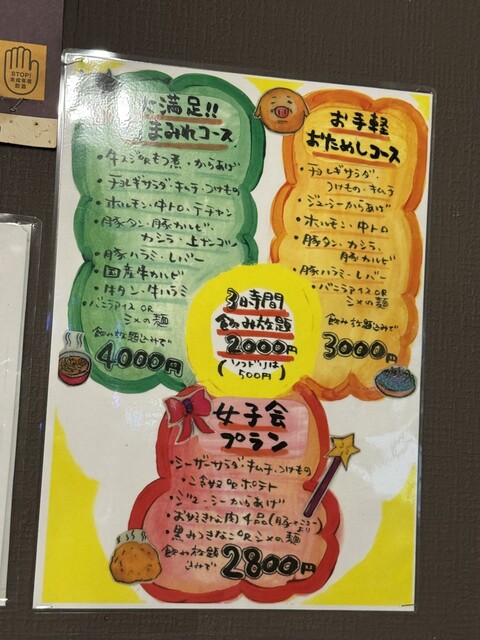 STOP!
未成年者
飲酒
満足!!
まみれコース
・牛スジorもつ煮・からあげ
・チョレギサラダ・キムチ・つけもの
・ホルモン・中トロ・テチャン
・豚タン・豚カルビ・
カシラ・上ナンコツ
・豚ハラミ・レバー
・国産牛カルビ
・牛タン・牛ハラミ
・バニラアイスOR
シメの麺
飲み放題込みで
4000円
お手軽
おためしコース
・チョレギサラダ・
つけもの・キムチ
・ジューシーからあげ
・ホルモン・中トロ
・豚タン・カシラ・
豚カルビ
・豚ハラミ・レバー
・バニラアイスOR
シメの麺
飲み放題込みで
3000円
3時間
飲み放題
2000円
(ソフドリは
500円)
女子会
プラン
・シーザーサラダ・キムチ・つけもの
・ポテト
・ジューシーからあげ
・お好きな肉4品(豚メニューより)
・黒みつきなこORシメの麺
飲み放題
込みで
2800円